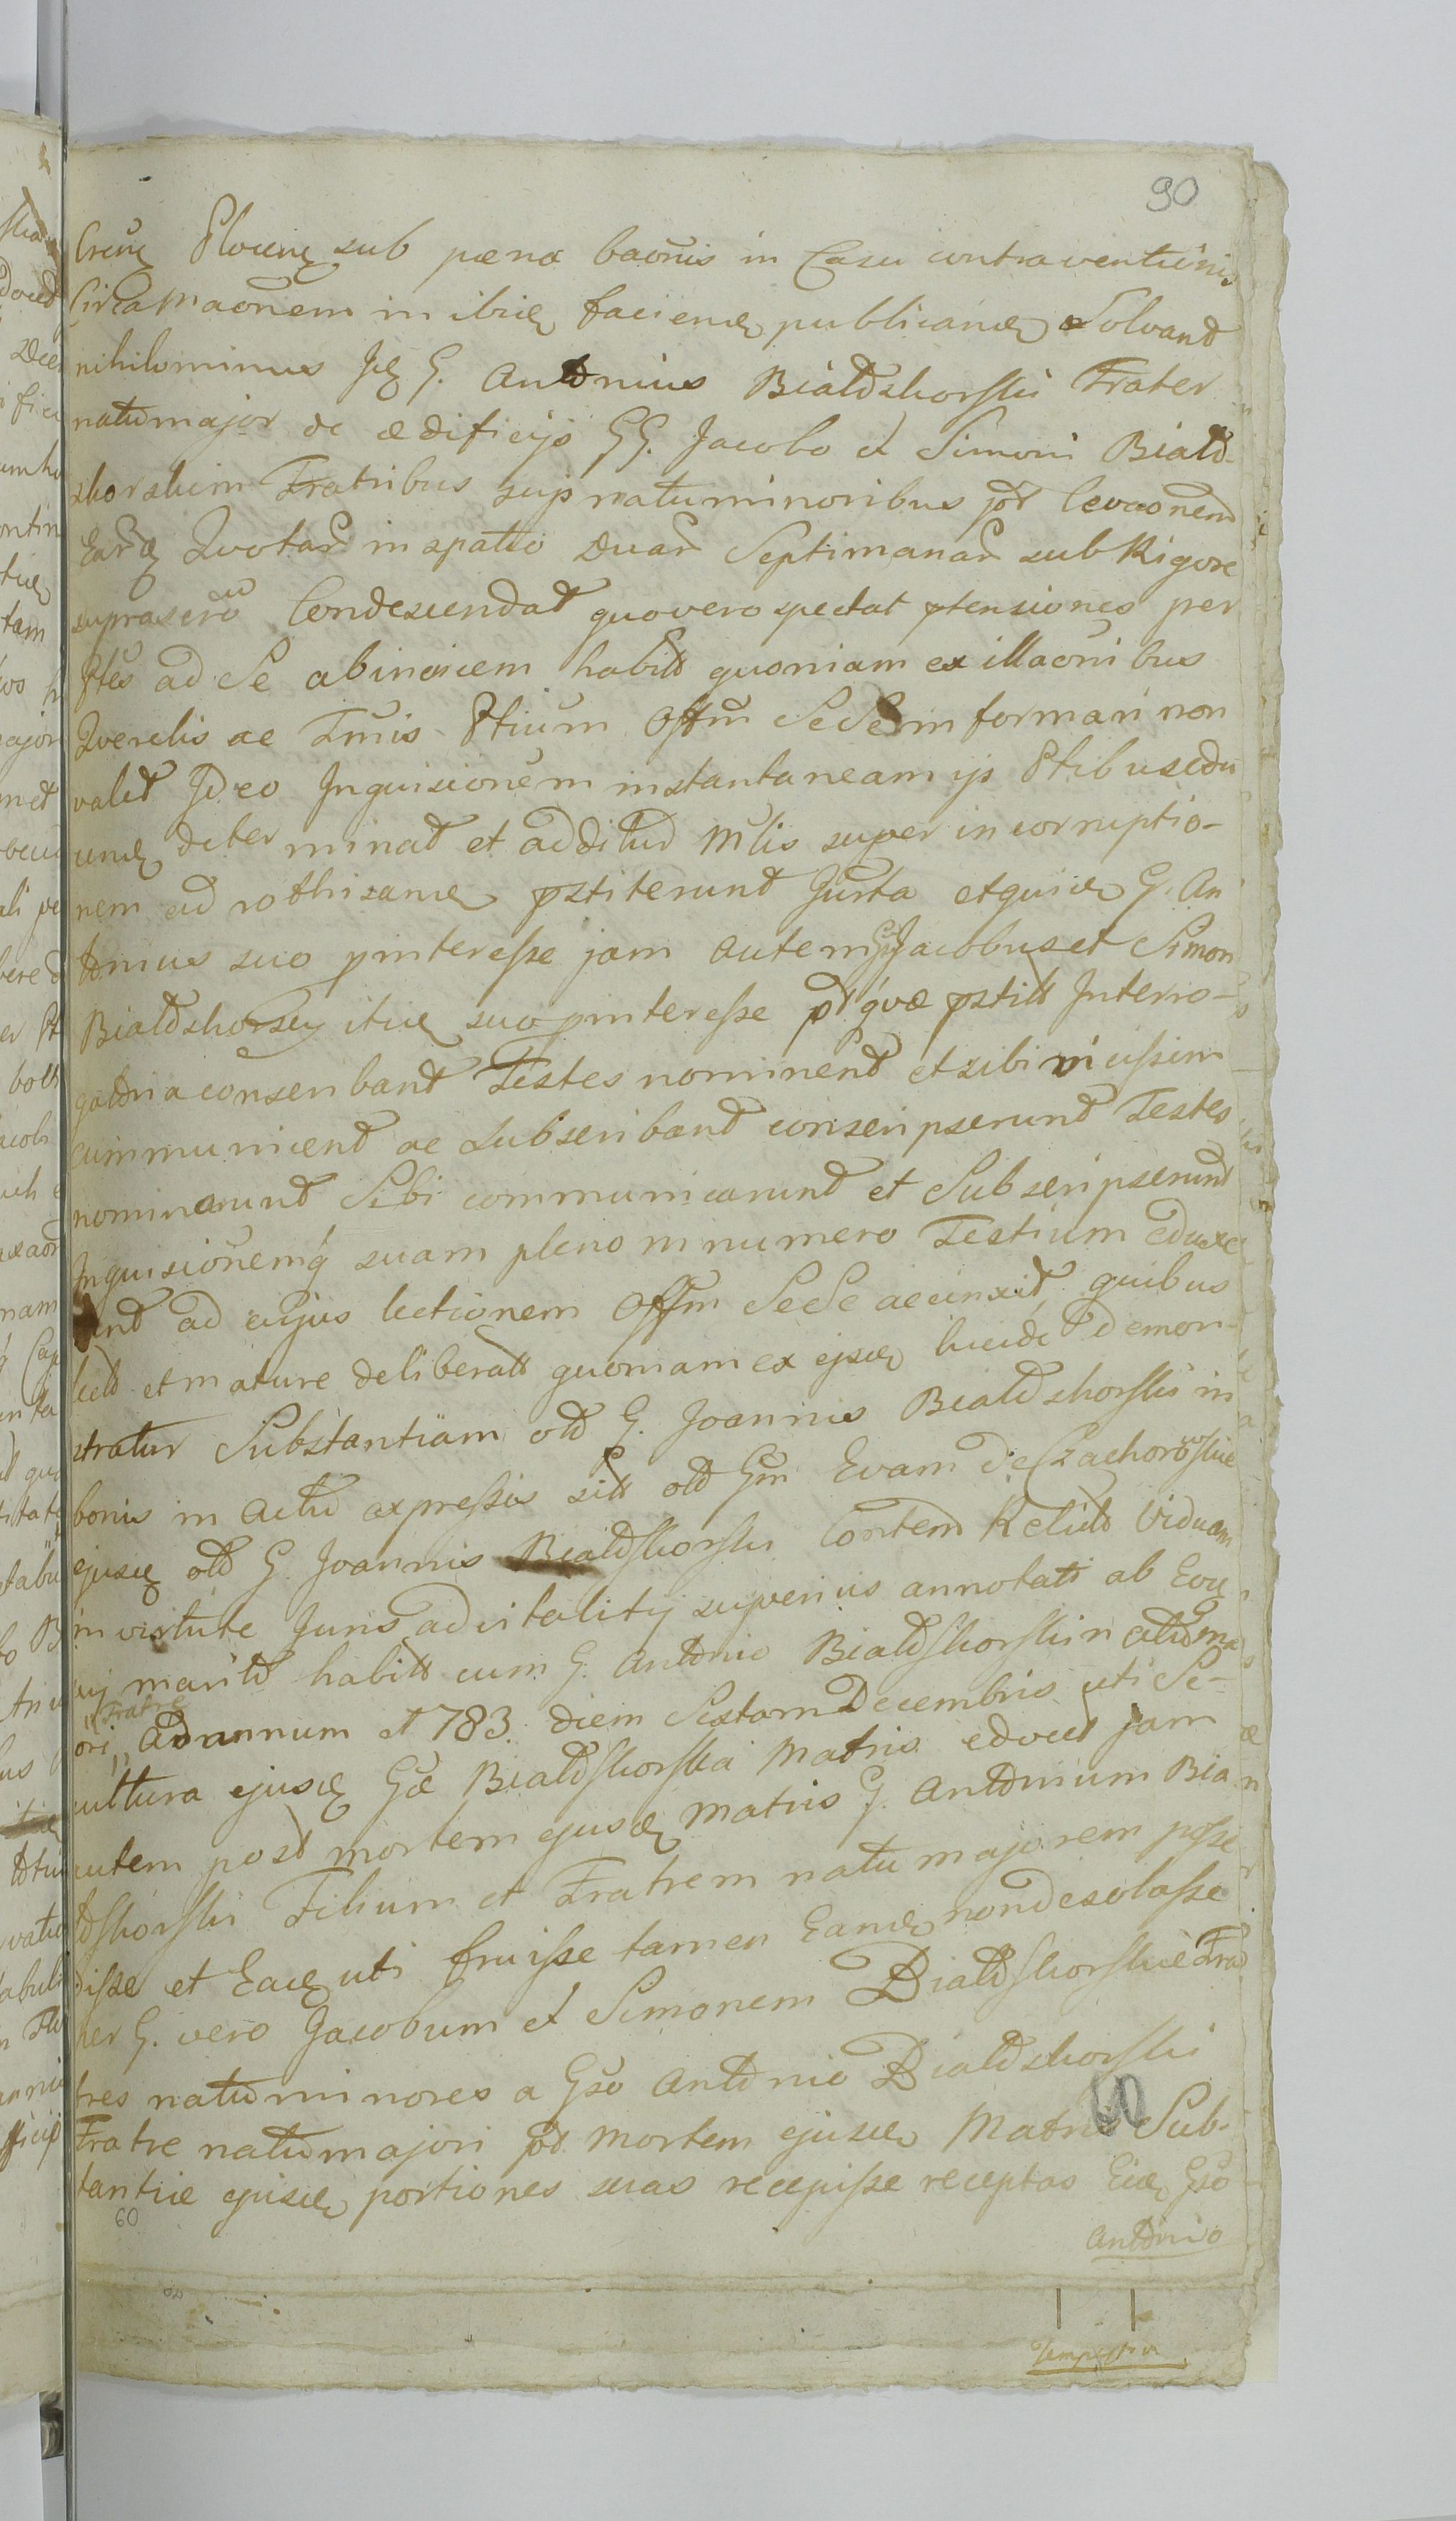 90
sub pæna baõnis in Casu contraventionis
Circa Maõnem in ibid faciend publicand Solvant
nihilominus Id G. Antonius Białoskorski Frater
natu major de ædificijs GG. Jacobo et Simoni Biało-
skorskim Fratribus suis natu minoribus post levaõnem
Eard Quotar in spatio Duar Septimanar sub Rigore
Condescendat quo vero spectat ptensiones per
Ptes ad Se ab invicem habitt quoniam ex illaõnibus
Querelis ac Tmis Ptium Offm SeSe informari non
valet Ideo Inquisionem instantaneam ijs Ptibus edu
cend determinat et additur Mlis super incorruptio-
nem ad rothisand pstiterunt Jurta et quid G. An
tonius suo pinteresse jam autem GG Jacobus et Simon
Białoskorscy itid suo pinteresse pt quæ pstitt Interro-
gatoria conscribant Testes nominent et sibi vicissim
communicent ac Subscribant conscripserunt Testes
nominarunt Sibi communicarunt et Subscripserunt
Inquisionemq suam pleno in numero Testium eduxe
runt ad cujus lectionem Offm SeSe accinxit, quibus
lectt et mature deliberatt quoniam ex ejsd lucide demon-
stratur Substantiam olt G. Joannis Białoskorski in
bonis in Actu expressis sitt olt Gm Evam de Szachorowskie
ejusd olt G. Joannis Białoskorski Contem Relict Viduam
in virtute Juris advitalitij superius annotati ab Eod
marito habitt cum G. Antonio Białoskorski natu ma
ori, Fratre Ad annum 1783 diem Sextam Decembris uti Se-
cultura ejusd Gæ Białoskorska Matris educt jam
autem post mortem ejusd Matris G. Antonium Bia
łoskorski Filium et Fratrem natu majorem posse
disse et Ead uti fruisse tamen Eand non desolasse
per G. vero Jacobum et Simonem Białoskorskie Fra
tres natu minores a Gso Antonio Białoskorski
Fratre natu majori post Mortem ejusd Matris Sub-
tantiæ ejusd portiones suas recepisse receptas Eid Gso
Antonio
60
60